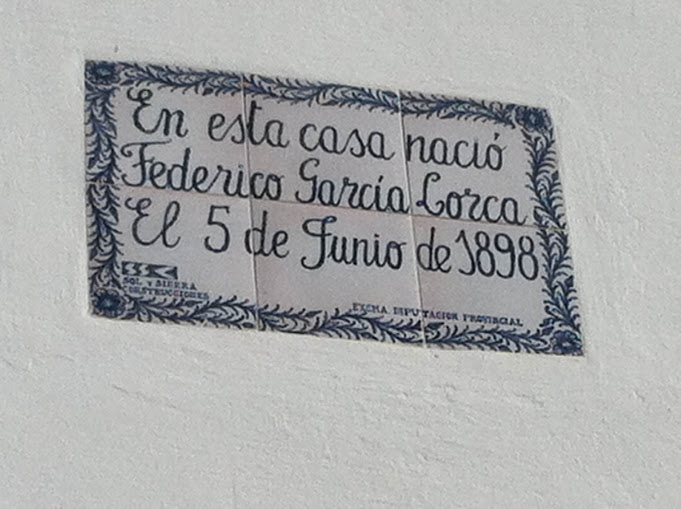 En esta casa nació
Federico García Lorca
El 5 de Junio de 1898
SOL Y SIERRA
CONSTRUCCIONES
EXCMA. DIPUTACION PROVINCIAL